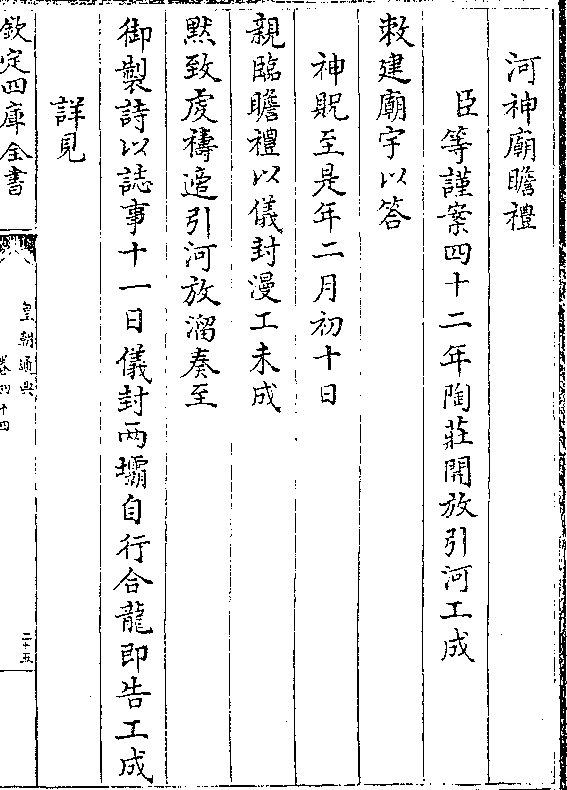 河神廟瞻禮
臣等謹案四十二年陶莊開放引河工成
敕建廟宇以答
神貺至是年二月初十日
親臨瞻禮以儀封漫工未成
默致虔禱適引河放溜奏至
御製詩以誌事十一日儀封兩壩自行合龍即告工成
詳見
欽定四庫全書
皇朝通典
卷四十四
二十五